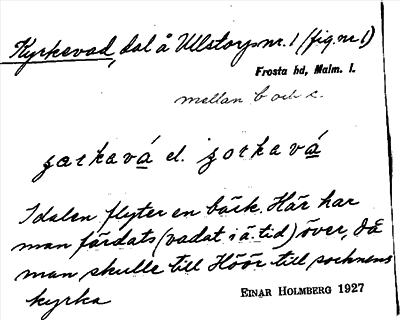 Kyrkevad, dal å Ullstorps nr. 1 (fig. nr 1)
Frosta hd, Malm. l.
mellan b och c.
ʒarkavá el. ʒorkavá
I dalen flyter en bäck. Här har
man färdats (vadat i ä. tid) över, då
man skulle till Höör till socknens
kyrka
EINAR HOLMBERG 1927